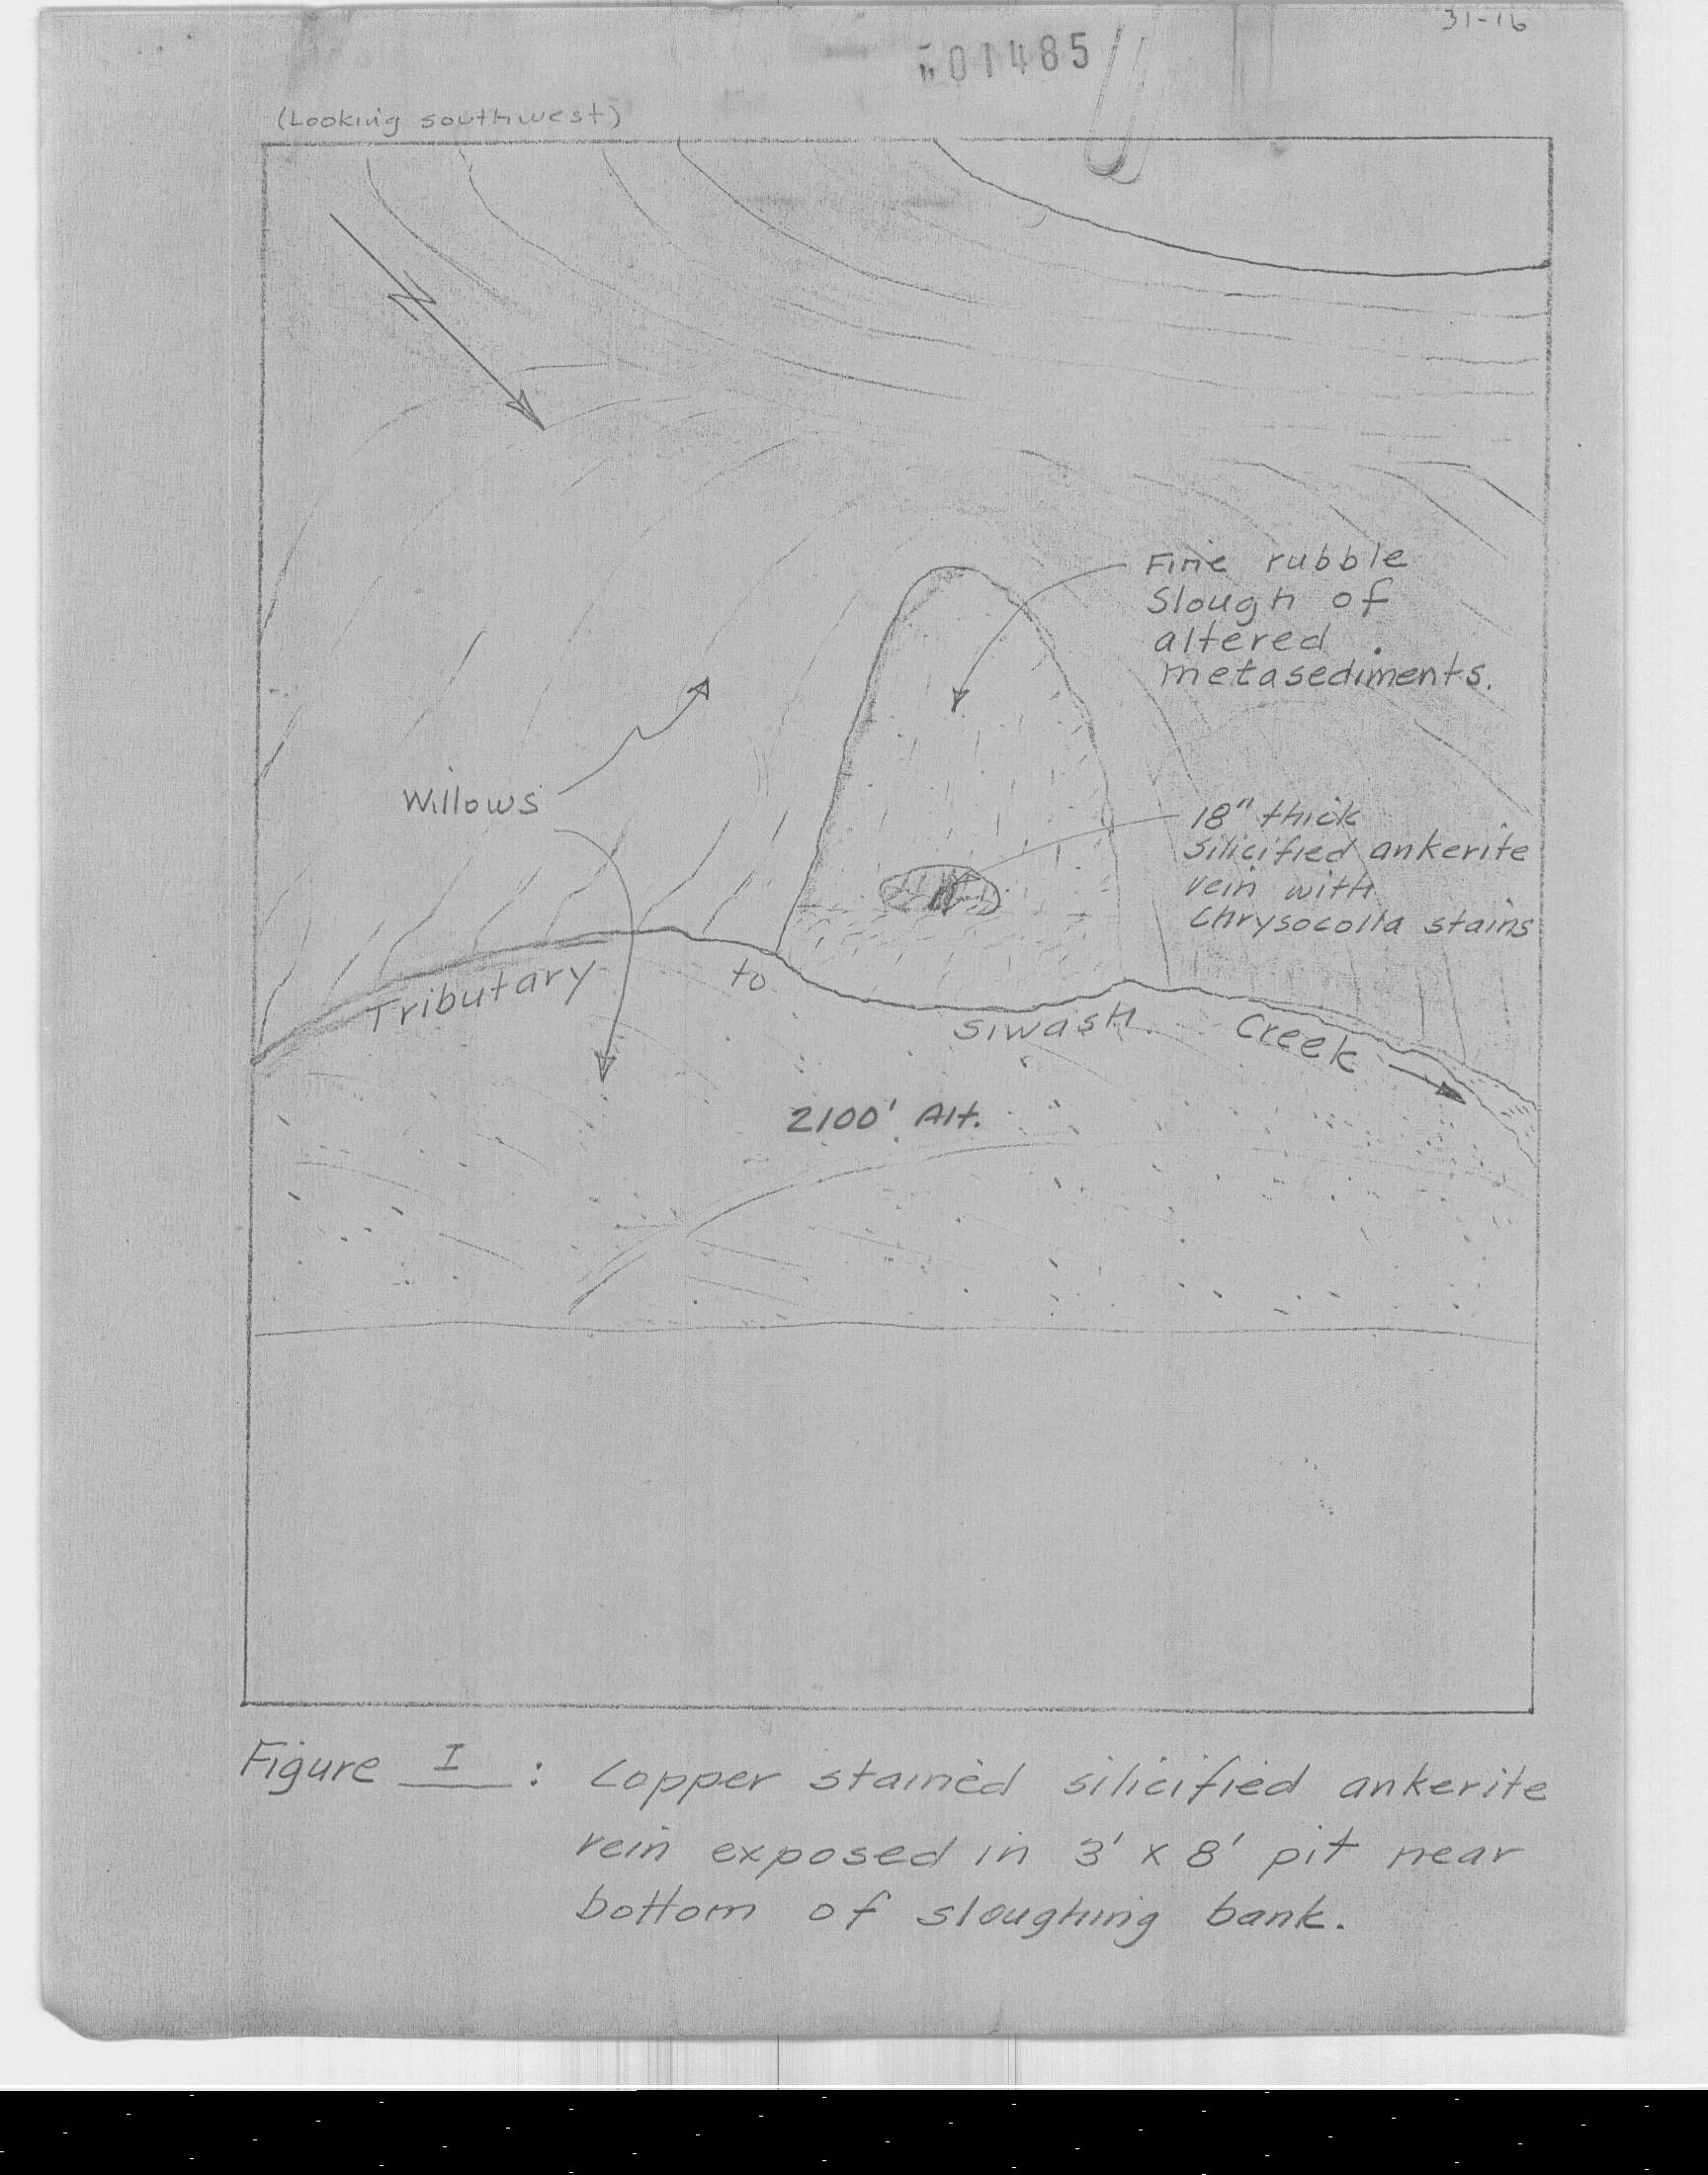 31-16
01485
(Looking southwest)
N
Fine rubble
Slough of
altered
metasediments.
Willows
18" thick
silicified ankerite
vein with
Chrysocolla stains
Tributary to Siwash Creek
2100' Alt.
Figure I : Copper stained silicified ankerite
vein exposed in 3' x 8' pit near
bottom of sloughing bank.